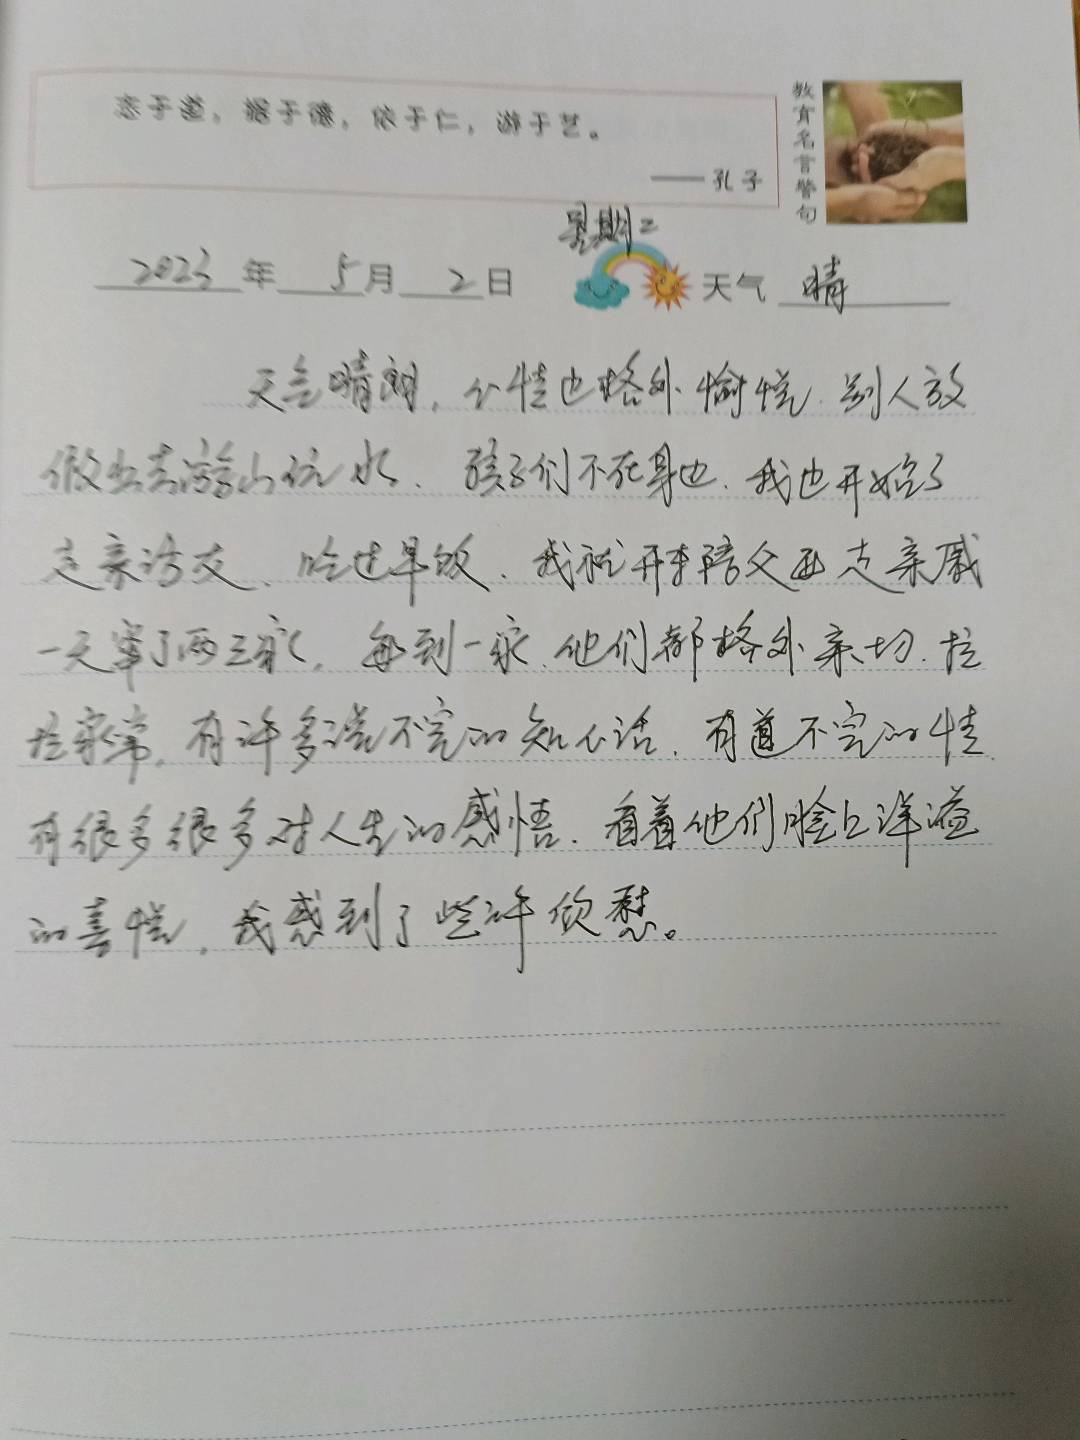 志于道，据于德，依于仁，游于艺。
——孔子
教育名言警句
星期二
2023年5月2日 天气 晴
天气晴朗，心情也格外愉悦.别人放
假出去游山玩水、孩子们不在身边、我也开始了
走亲访友、吃过早饭、我就开车陪父母走亲戚
一天窜了两三家，每到一家、他们都格外亲切、拉
拉家常，有许多说不完的知心话、有道不完的情、
有很多很多对人生的感悟、看着他们脸上洋溢
的喜悦，我感到了些许欣慰。